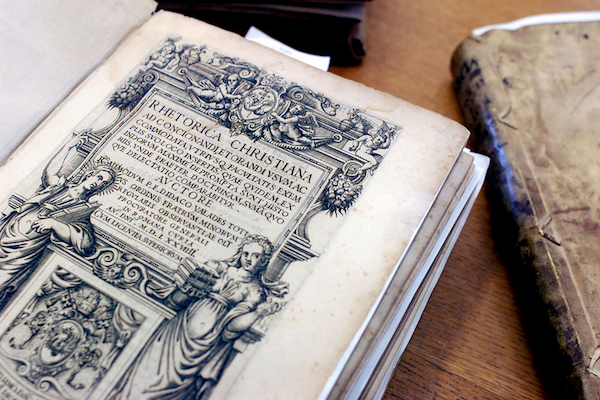 RHETORICA CHRISTIANA
AD CONCIONANDI, ET ORANDI VSVM, AC
COMMODATA, VTRIVSQ FACVLTATIS EXEM
PLIS SVO LOCO INSERTIS, QVAE QVIDEM, EX
INDORVM MAXIME DEPROMPTA SVNT HISTO
RIIS. VNDE PRAETER DOCTRINAM, SVMA QVO
QVE DELECTATIO COMPARABITVR
AVCTORE
ADMODVM P. F. DIDACO VALADES TOTIVS
ORDINIS FRATRVM MINORVM
OBSERVANTIAE OLI
PROCVRATORE GENERALI
IN ROMANA CVRIA